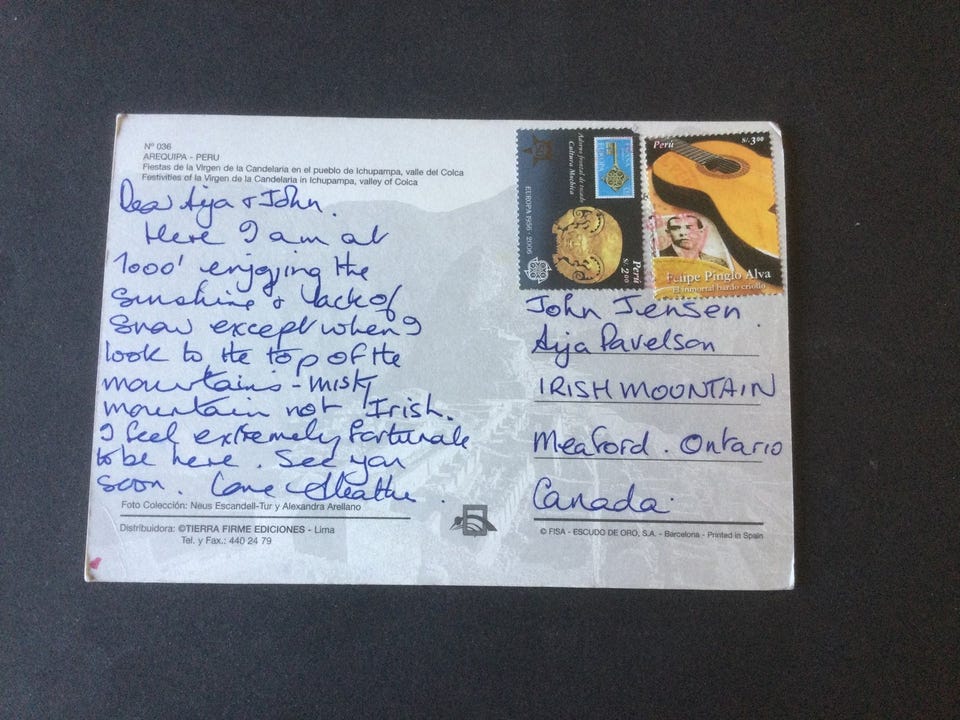 Nº 036
AREQUIPA - PERU
Fiestas de la Virgen de la Candelaria en el pueblo de Ichupampa, valle del Colca
Festivities of la Virgen de la Candelaria in Ichupampa, valley of Colca
Dear Aija + John.
Here I am at
1000' enjoying the
sunshine + lack of
snow except when I
look to the top of the
mountains - misty
mountain not Irish.
I feel extremely fortunate
to be here. See you
soon. Love Heather.
Foto Colección: Neus Escandell-Tur y Alexandra Arellano
Distribuidora: ©TIERRA FIRME EDICIONES - Lima
Tel. y Fax.: 440 24 79
Adorno frontal de tocado
Cultura Mochica
EUROPA 1956 - 2006
Perú
S/. 2.00
Perú
S/. 3.00
Felipe Pinglo Alva
El inmortal bardo criollo
John Jensen
Aija Pavelson
IRISH MOUNTAIN
Meaford. Ontario
Canada.
© FISA - ESCUDO DE ORO, S.A. - Barcelona - Printed in Spain